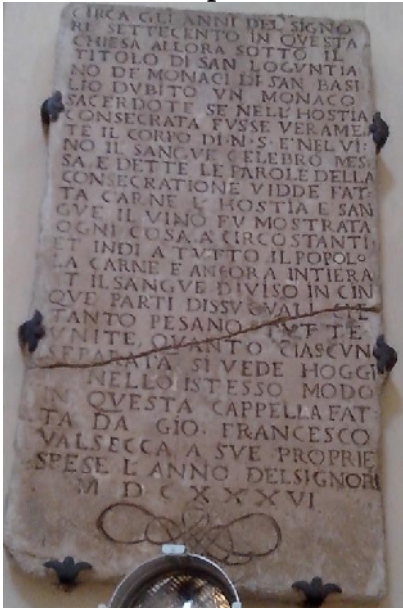 CIRCA GLI ANNI DEL SIGNO
RI SETTECENTO IN QVESTA
CHIESA ALLORA SOTTO IL
TITOLO DI SAN LOGVNTIA
NO DE MONACI DI SAN BASI
LIO DVBITO VN MONACO
SACERDOTE SE NELL HOSTIA
CONSECRATA FVSSE VERAMEN
TE IL CORPO DI·N·S·E NEL VI·
NO IL SANGVE CELEBRO MES
SA E DETTE LE PAROLE DELLA
CONSECRATIONE VIDDE FAT·
TA CARNE L HOSTIA E SAN
GVE IL VINO FV MOSTRATA
OGNI COSA A CIRCOSTANTI
ET INDI A TVTTO IL POPOLO
LA CARNE E ANCORA INTIERA
ET IL SANGVE DIVISO IN CIN
QVE PARTI DISSVGVALI CHE
TANTO PESANO TVTTE
VNITE QVANTO CIASCVNA
SEPARATA SI VEDE HOGGI
NELLO ISTESSO MODO
IN QVESTA CAPPELLA FAT·
TA DA GIO· FRANCESCO
VALSECCA A SVE PROPRIE
SPESE L ANNO DEL SIGNORE
M D C X X X VI